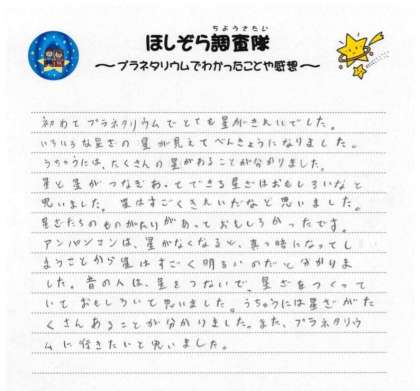 ちょうさたい
ほしぞら調査隊
～プラネタリウムでわかったことや感想～
初めてプラネタリウムでとても星がきれいでした。
いろいろな星ざの星が見えてべんきょうになりました。
うちゅうには、たくさんの星があることが分かりました。
星と星がつなぎあってできる星ざはおもしろいなと
思いました。星はすごくきれいだなと思いました。
星ざたちのものがたりがあっておもしろかったです。
アンパンマンは、星がなくなると、真っ暗になってし
まうことから星はすごく明るいのだと分かりま
した。昔の人は、星をつないで、星ざをつくって
いておもしろいと思いました。うちゅうには星ざがた
くさんあることが分かりました。また、プラネタリウ
ムに行きたいと思いました。